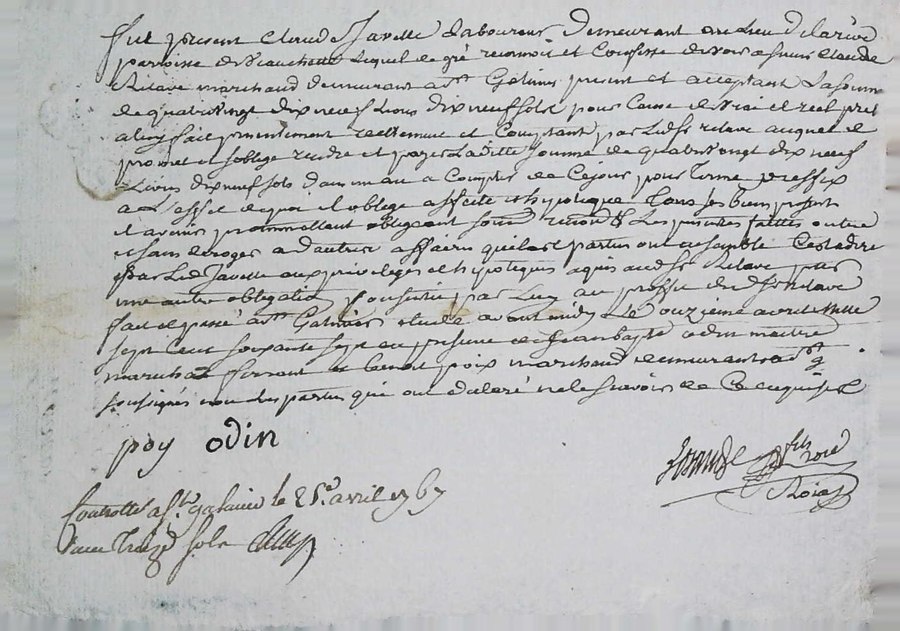 fut present Claude Javelle laboureur demeurant au lieu de larive
paroisse de Veauchette lequel de gré reconnoit et Confesse devoir a sieur Claude
Relave marchand demeurant a St Galmier present et acceptant La somme
de quatrevingt dix neuf Livres dix neuf sols pour Cause de vrai et reel pret
a luy fait presentement reellement et Comptant par Led sr relave auquel il
promet et soblige rendre et payer Laditte somme de quatrevingt dix neuf
Livres dix neuf sols dans un an a Compter de Ce jour pour terme preffix
a L'effet de quoi il oblige affecte et hypoteque Tous ses biens presents
et avenir promettant obligeant soum renon Les presentes faittes outre
et sans deroger a d'autres affaires quelles partis ont ensemble C'est a dire
par Led Javelle aux privileges et hypoteques aquis aud sr Relave par
une autre obligation souscritte par Luy au proffit dud sr relave
fait et passé a St Galmier etude avant midy Le onzieme avril mille
sept cent soixante sept en presence de Jean bapte odin maitre
marechal ferrant et benoit poix marchand demeurants ad St g
soussignes non Les partis qui ont declaré ne le scavoir de Ce enquis
poy odin
fils
Controllé a St galmier le 25e avril 1767
Reçu Treize sols